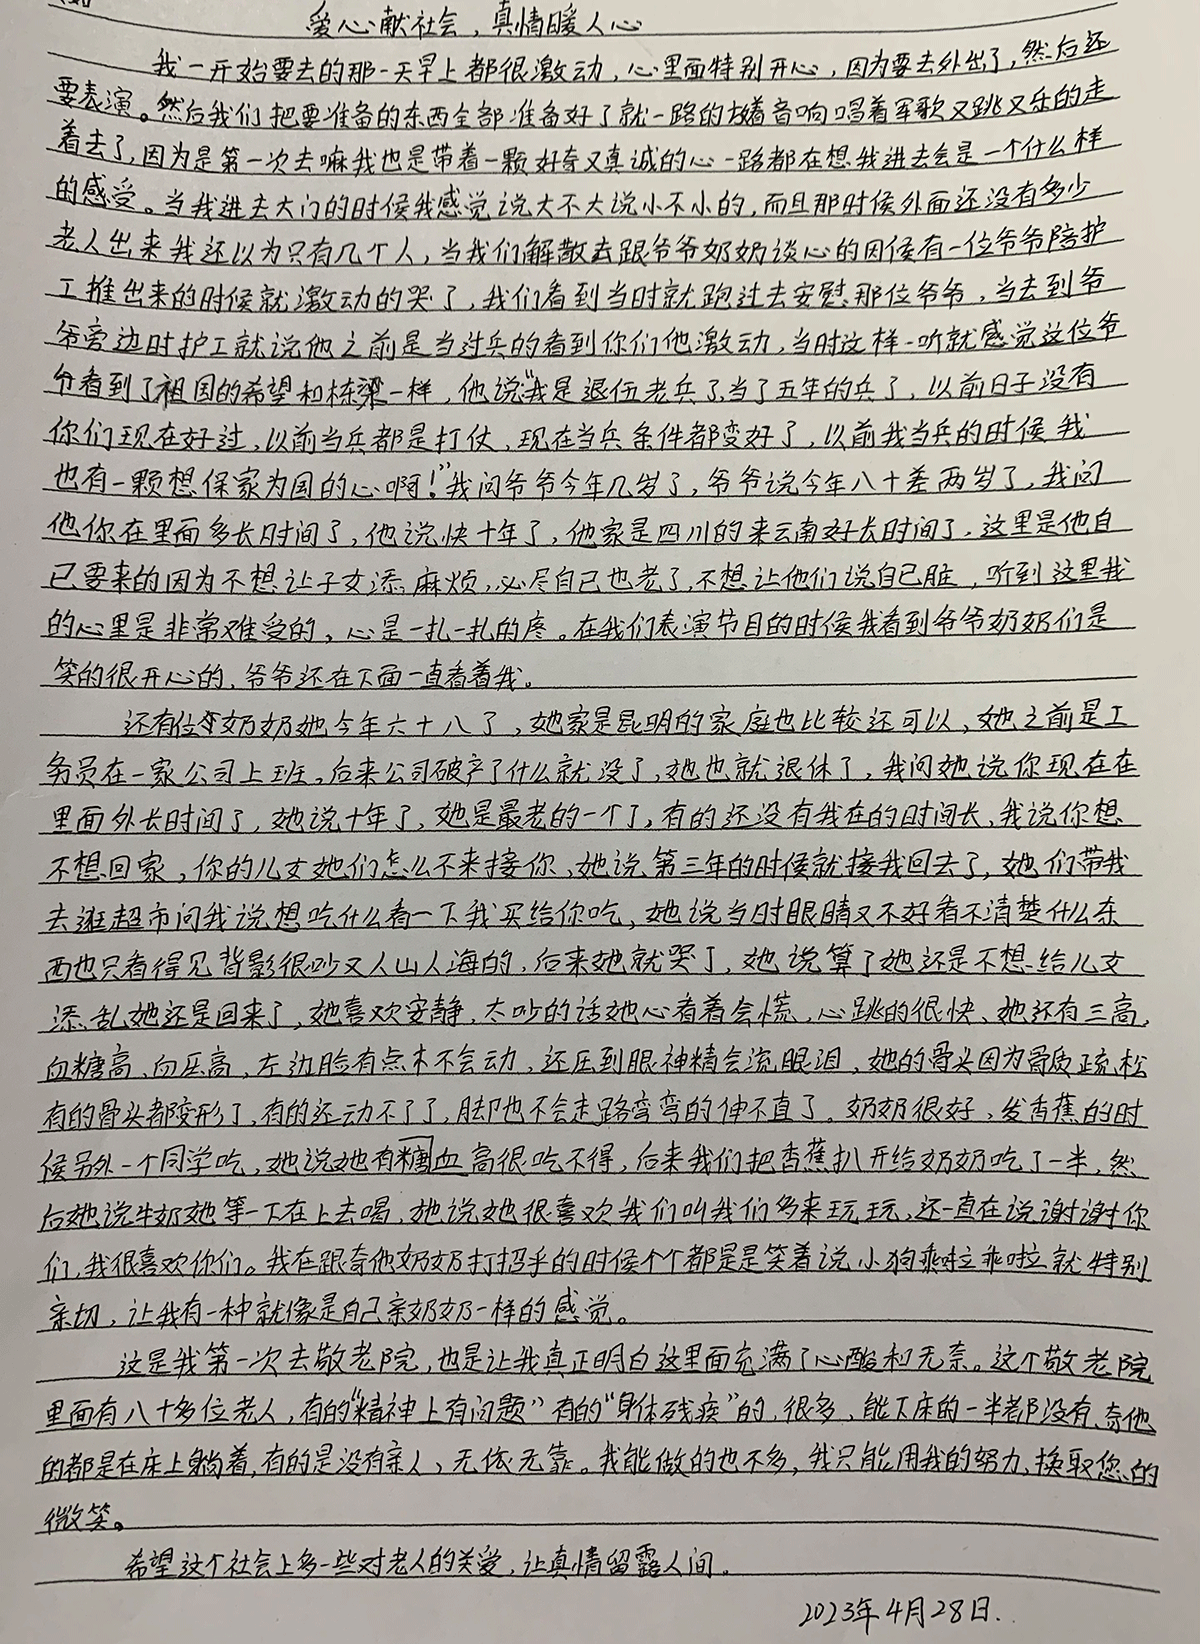 爱心献社会，真情暖人心
我一开始要去的那一天早上都很激动，心里面特别开心，因为要去外出了，然后还
要表演。然后我们把要准备的东西全部准备好了就一路的放着音响唱着军歌又跳又乐的走
着去了，因为是第一次去嘛我也是带着一颗好奇又真诚的心一路都在想我进去会是一个什么样
的感受。当我进去大门的时候我感觉说大不大说小不小的，而且那时候外面还没有多少
老人出来我还以为只有几个人，当我们解散去跟爷爷奶奶谈心的因候有一位爷爷陪护
工推出来的时候就激动的哭了，我们看到当时就跑过去安慰那位爷爷，当去到爷
爷旁边时护工就说他之前是当过兵的看到你们他激动，当时这样一听就感觉这位爷
爷看到了祖国的希望和栋梁一样，他说“我是退伍老兵了，当了五年的兵了，以前日子没有
你们现在好过，以前当兵都是打仗，现在当兵条件都变好了，以前我当兵的时候我
也有一颗想保家为国的心啊！”我问爷爷今年几岁了，爷爷说今年八十差两岁了，我问
他你在里面多长时间了，他说快十年了，他家是四川的来云南好长时间了，这里是他自
已要来的因为不想让子女添麻烦，必尽自己也老了，不想让他们说自己脏，听到这里我
的心里是非常难受的，心是一扎一扎的疼。在我们表演节目的时候我看到爷爷奶奶们是
笑的很开心的，爷爷还在下面一直看着我。
还有位奶奶她今年六十八了，她家是昆明的家庭也比较还可以，她之前是工
务员在一家公司上班。后来公司破产了什么就没了，她也就退休了，我问她说你现在在
里面外长时间了，她说十年了，她是最老的一个了，有的还没有我在的时间长，我说你想
不想回家，你的儿女她们怎么不来接你，她说第三年的时候就接我回去了，她们带我
去逛超市问我说想吃什么看一下我买给你吃，她说当时眼睛又不好看不清楚什么东
西也只看得见背影很吵又人山人海的，后来她就哭了，她说算了她还是不想给儿女
添乱她还是回来了，她喜欢安静，太吵的话她心看着会慌，心跳的很快，她还有三高，
血糖高、血压高，左边脸有点木不会动，还压到眼神精会流眼泪，她的骨头因为骨质疏松
有的骨头都变形了，有的还动不了了，脚也不会走路弯弯的伸不直了。奶奶很好，发香蕉的时
候另外一个同学吃，她说她有糖血高很吃不得，后来我们把香蕉扒开给奶奶吃了一半，然
后她说牛奶她等一下在上去喝，她说她很喜欢我们叫我们多来玩玩，还一直在说谢谢你
们，我很喜欢你们。我在跟奇他奶奶打招乎的时候个个都是是笑着说小狗乖啦乖啦就特别
亲切，让我有一种就像是自己亲奶奶一样的感觉。
这是我第一次去敬老院，也是让我真正明白这里面充满了心酸和无奈。这个敬老院
里面有八十多位老人，有的“精神上有问题”有的“身体残疾”的，很多，能下床的一半都没有，奇他
的都是在床上躺着，有的是没有亲人、无依无靠。我能做的也不多，我只能用我的努力，换取您的
微笑。
希望这个社会上多一些对老人的关爱，让真情留露人间。
2023年4月28日.